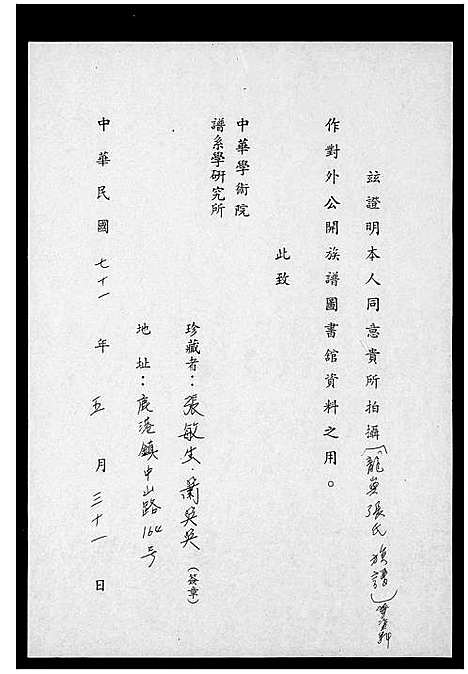 茲證明本人同意貴所拍攝（龍嵙張氏族譜）等資料
作對外公開族譜圖書館資料之用。
此致
中華學術院
譜系學研究所
珍藏者：張敏生．蕭吳吳（簽章）
地址：鹿港鎮中山路164号
中華民國七十一年五月三十一日